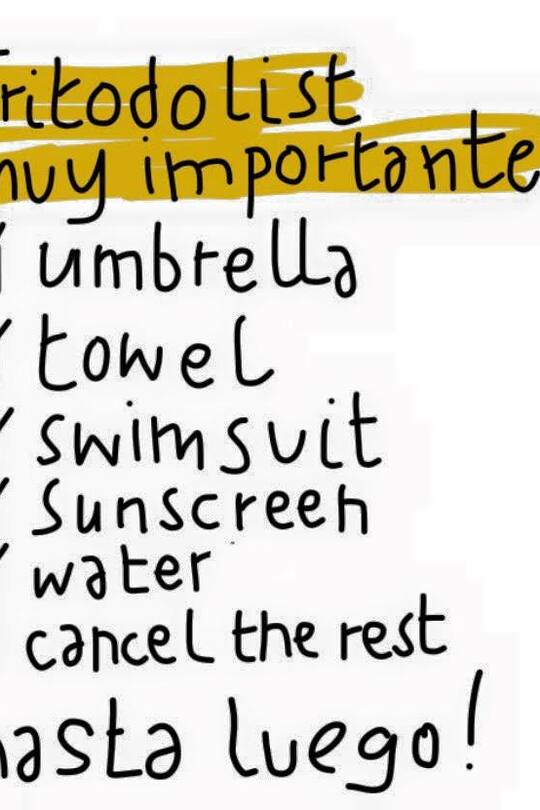 ritodolist
muy importante
umbrella
towel
swimsuit
sunscreen
water
cancel the rest
hasta luego!